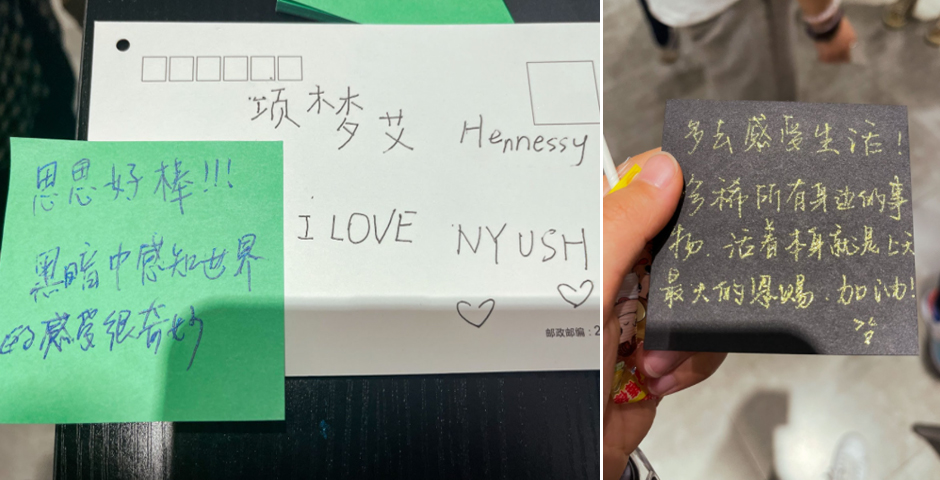 颂梦艾 Hennessy
I LOVE NYUSH
邮政邮编：2
思思好棒!!!
黑暗中感知世界
的感受很奇妙
多去感受生活！
多稀所有身边的事
物. 活着本身就是上天
最大的恩赐. 加油!